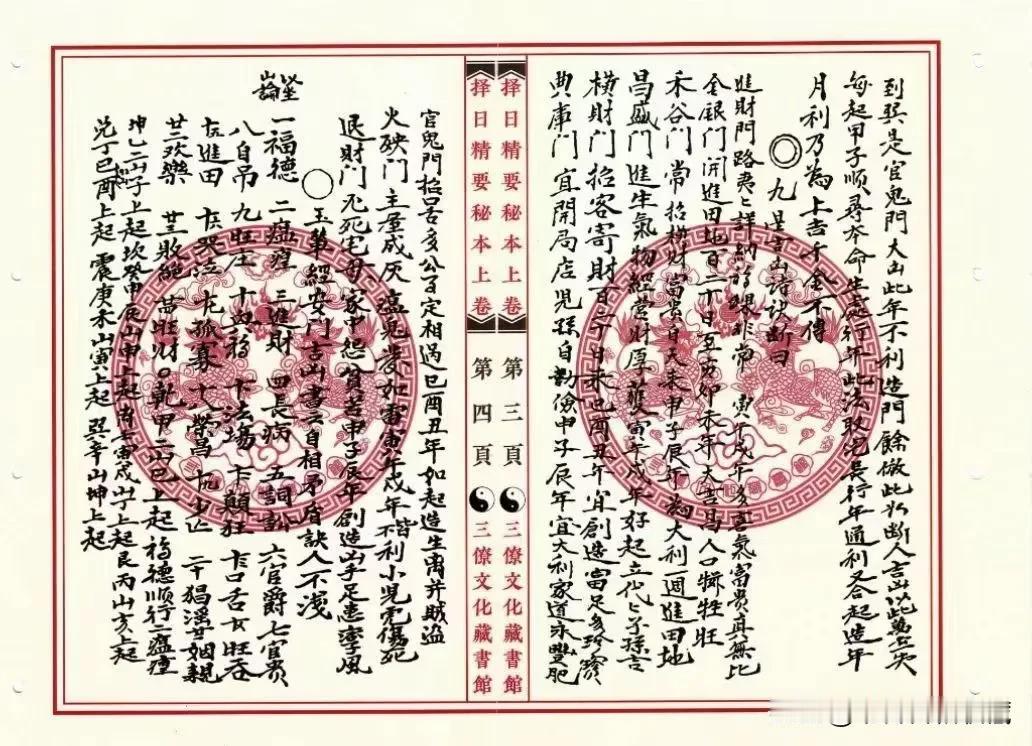 到巽是官鬼門大凶此年不利造門餘倣此
每起甲子順尋本命生處行年此法取宅長行年通利又合起造年
月利乃為上吉千金不傳
◎九星吉凶詩訣斷曰
進財門路
金銀門開進田地百二十日至亥卯未年大吉昌人口犧牲旺
禾谷門常招橫財富貴自天來申子辰年為大利一週進田地
昌盛門進生氣物經營財厚獲寅午戌年好起立代代子孫
橫財門招客寄財百二十日來巳酉丑年宜創造富足多珍寶
典庫門宜開局店兒孫自勤儉甲子辰年宜大利家道永豐肥
择日精要秘本上卷 第三頁 三僚文化藏書館
择日精要秘本上卷 第四頁 三僚文化藏書館
官鬼門招口舌多公事定相遇巳酉丑年如起造生离并賊盜
火殃門主屋成灰瘟鬼凌如雷寅午戌年不利小兒
退財門 家中怨貧苦申子辰年創造凶手足患瘋
○玉輦經安門吉凶書云自相矛盾訣人不淺
坐山論
一福德 二瘟𤶀 三進財 四長病 五詞訟 六官爵 七官貴
八自吊 九旺庄 十興福 十一法場 十二顛狂 十三口舌 十四旺蚕
十五進田 十六哭泣 十七孤寡 十八榮昌 十九少亡 二十娼淫 廿一姻親
廿二欢樂 廿三敗絕 廿四旺財 ○乾甲二山巳上起福德順行二瘟𤶀
坤乙二山子上起坎癸申辰山申上起 寅戌山 上起艮丙山亥上起
兌丁巳丑山酉上起震庚 未山寅上起巽辛山坤上起